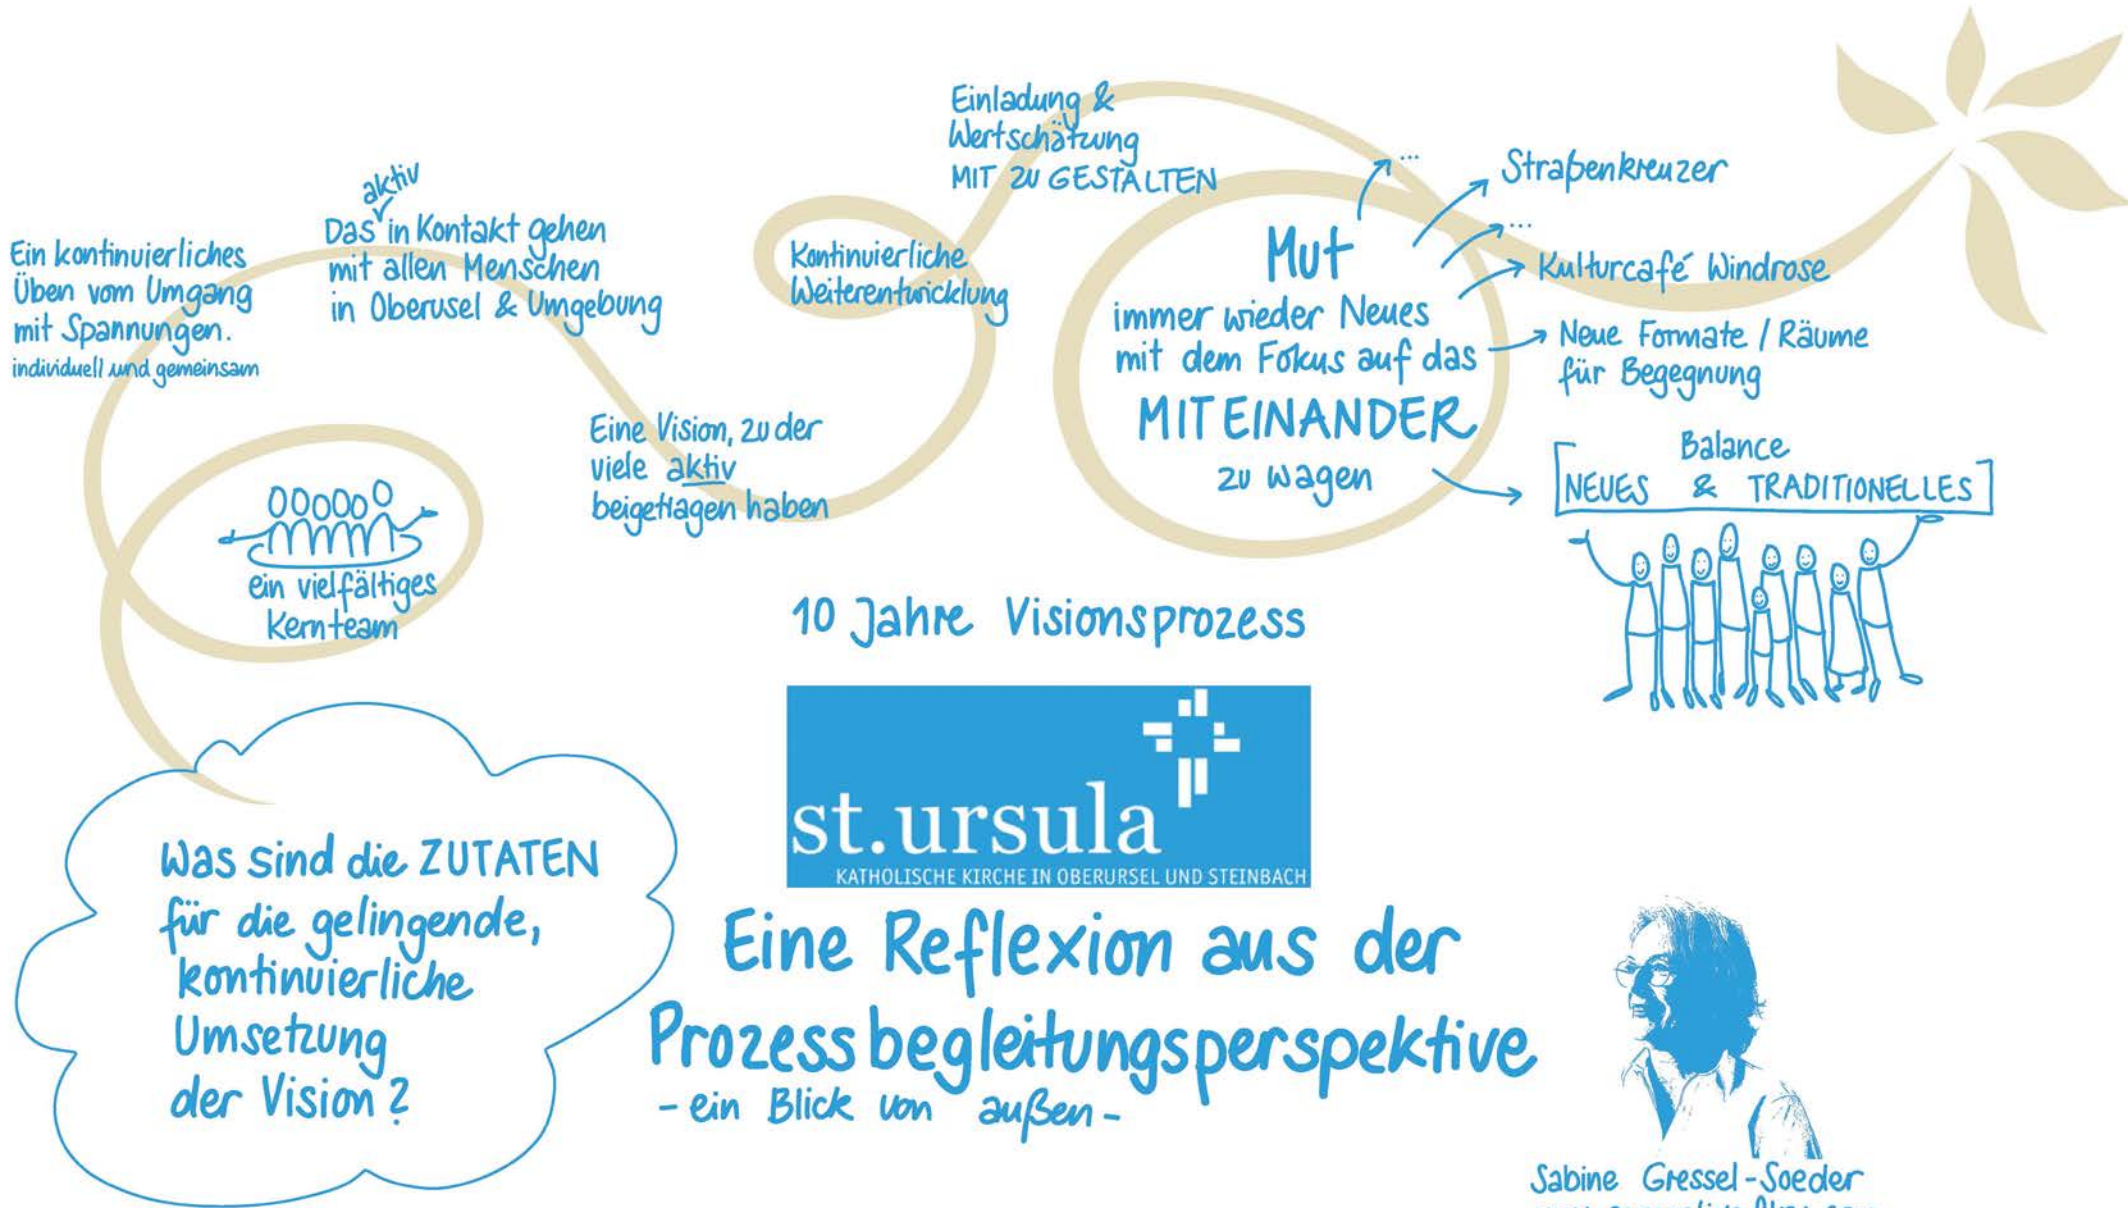 Ein kontinuierliches
Üben vom Umgang
mit Spannungen.
individuell und gemeinsam
aktiv
Das in Kontakt gehen
mit allen Menschen
in Oberusel & Umgebung
ein vielfältiges
Kernteam
Eine Vision, zu der
viele aktiv
beigetragen haben
Kontinuierliche
Weiterentwicklung
Einladung &
Wertschätzung
MIT ZU GESTALTEN
Mut
immer wieder Neues
mit dem Fokus auf das
MITEINANDER
zu wagen
...
Straßenkreuzer
...
Kulturcafé Windrose
Neue Formate / Räume
für Begegnung
Balance
NEUES & TRADITIONELLES
10 Jahre Visionsprozess
st.ursula
KATHOLISCHE KIRCHE IN OBERURSEL UND STEINBACH
Eine Reflexion aus der
Prozessbegleitungsperspektive
- ein Blick von außen -
Was sind die ZUTATEN
für die gelingende,
kontinuierliche
Umsetzung
der Vision?
Sabine Gressel-Soeder